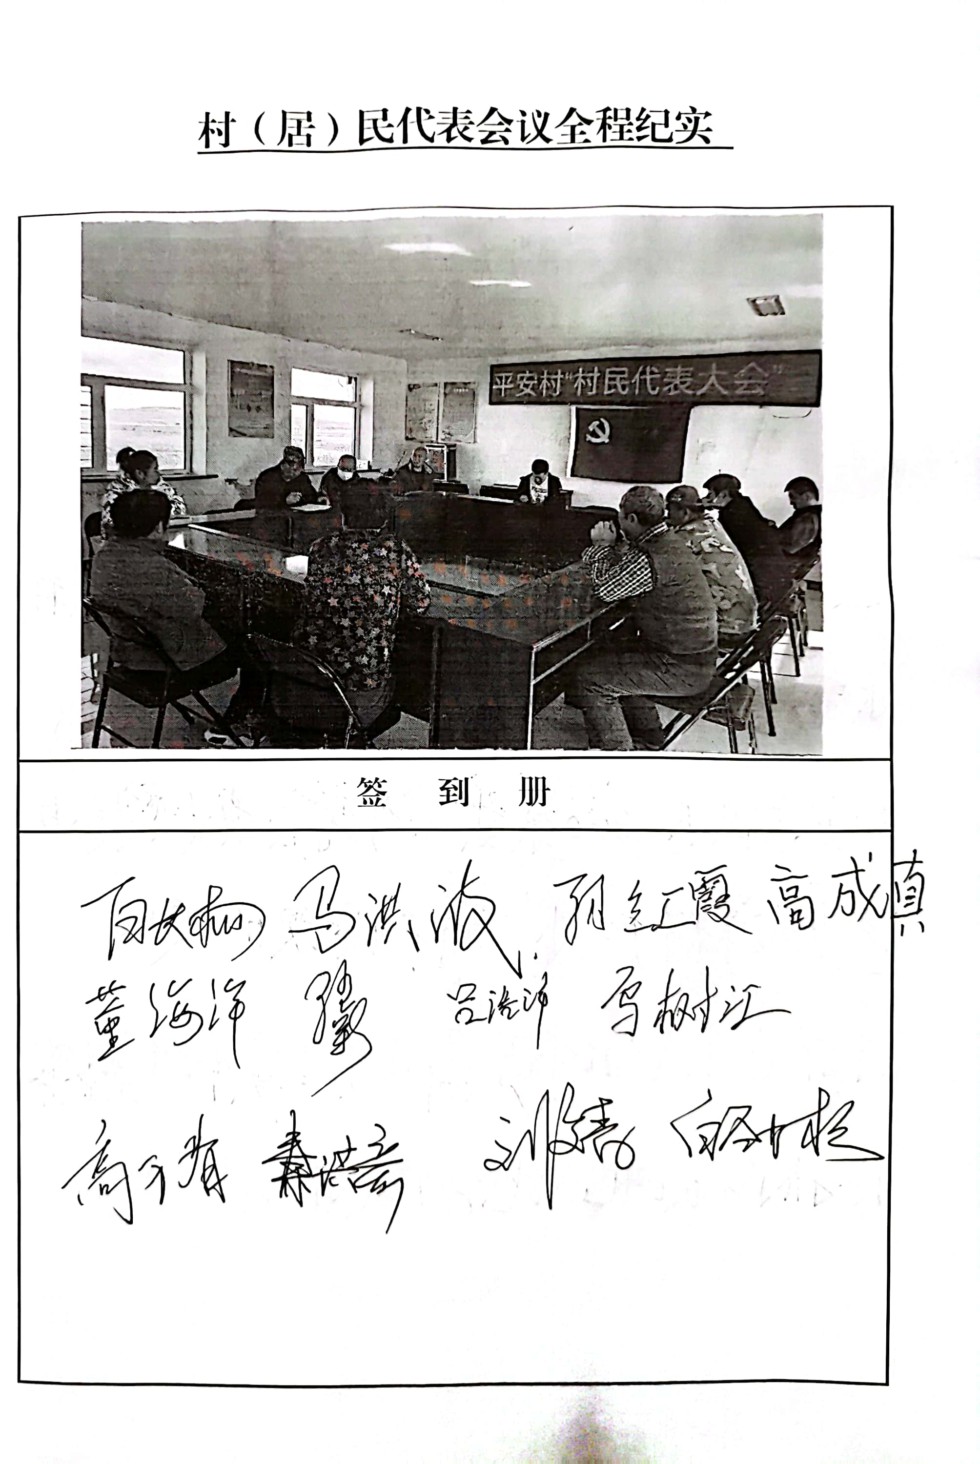 村（居）民代表会议全程纪实
平安村“村民代表大会”
签到册
马洪波 孙红霞 高成真
董海洋 吕浩洋 马树江
高 秦洪彦 刘 白